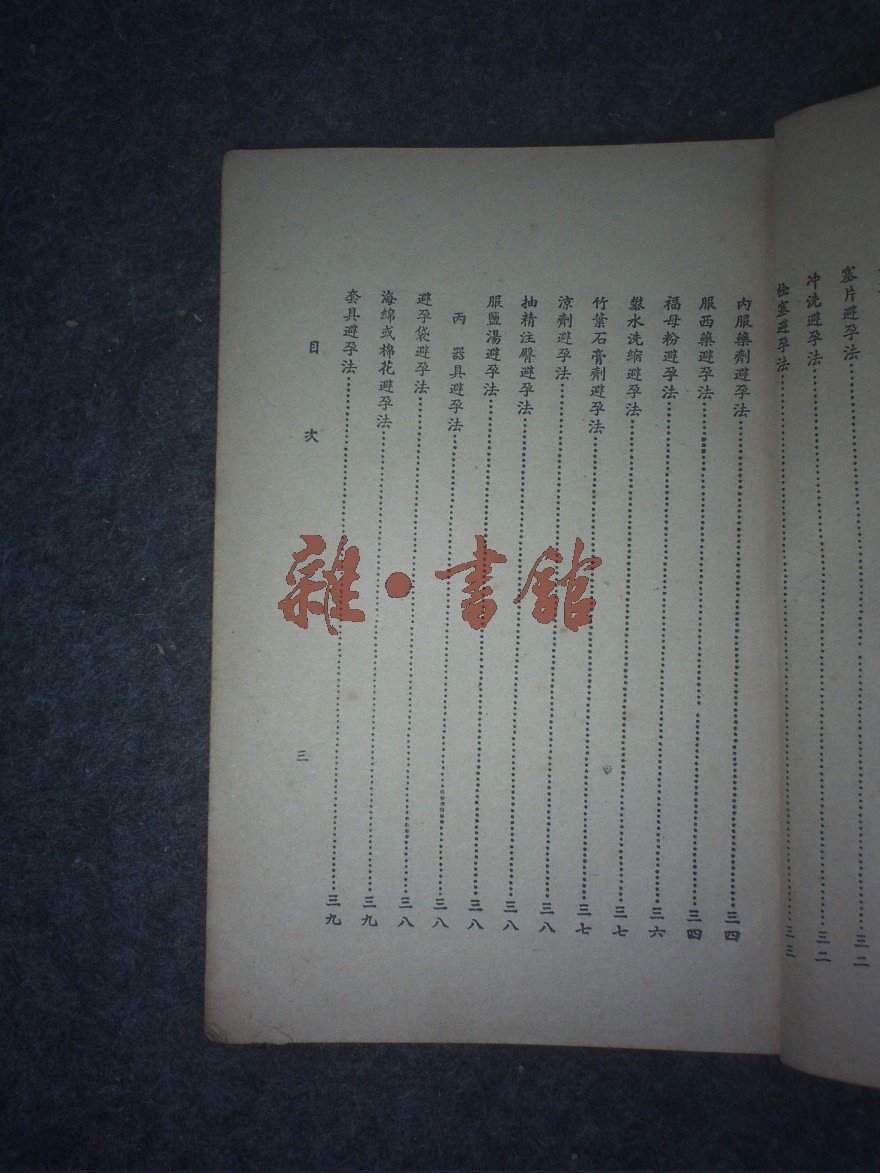 塞片避孕法……三二
冲洗避孕法……三二
栓塞避孕法……三三
內服藥劑避孕法……三四
服西藥避孕法……三四
福母粉避孕法……三六
礬水洗縮避孕法……三七
竹葉石膏劑避孕法……三七
涼劑避孕法……三八
抽精注臀避孕法……三八
服鹽湯避孕法……三八
丙 器具避孕法……三八
避孕袋避孕法……三八
海綿或棉花避孕法……三九
套具避孕法……三九
目 次 三
雜·書館